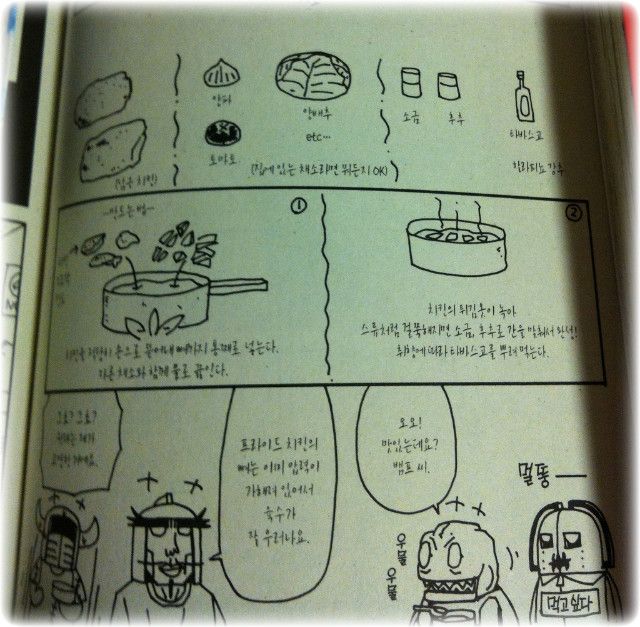 양파
양배추
소금
후추
타바스코
토마토
etc…
(남은 치킨)
(집에 있는 채소라면 뭐든지 OK)
할라피뇨 강추
—만드는 법—
①
②
치킨을 적당히 손으로 뜯어내 뼈까지 통째로 넣는다.
다른 채소와 함께 물로 끓인다.
치킨의 튀김옷이 녹아
스튜처럼 걸쭉해지면 소금, 후추로 간을 맞춰서 완성!
취향에 따라 타바스코를 뿌려 먹는다.
그죠? 그죠?
프라이드 치킨의
뼈는 이미 압력이
가해져 있어서
육수가
잘 우러나요.
오오!
맛있는데요?
뱀프 씨.
멀뚱—
우물
우물
먹고 싶다